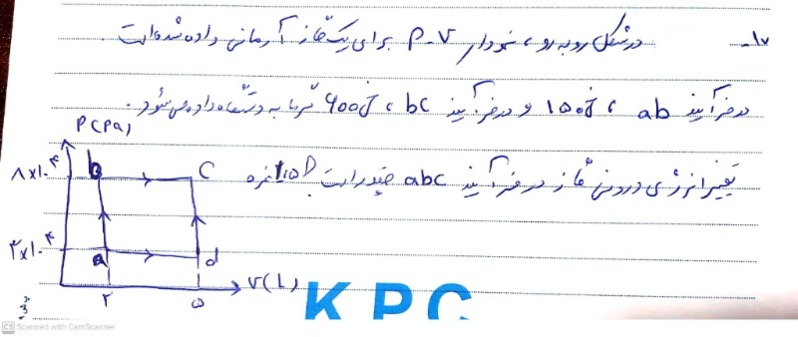 ۱۷- در شکل روبه‌رو، نمودار P-V برای یک گاز آرمانی داده شده است.
در فرآیند ab ، ۱۵۰J و در فرآیند bc ، ۶۰۰J گرما به دستگاه داده می‌شود.
تغییر انرژی درونی گاز در فرآیند abc چقدر است؟ ۱/۵ نمره
P(Pa)
۸×۱۰^۴
b
c
۳×۱۰^۴
a
d
V(L)
۲
۵
KPC
CS Scanned with CamScanner